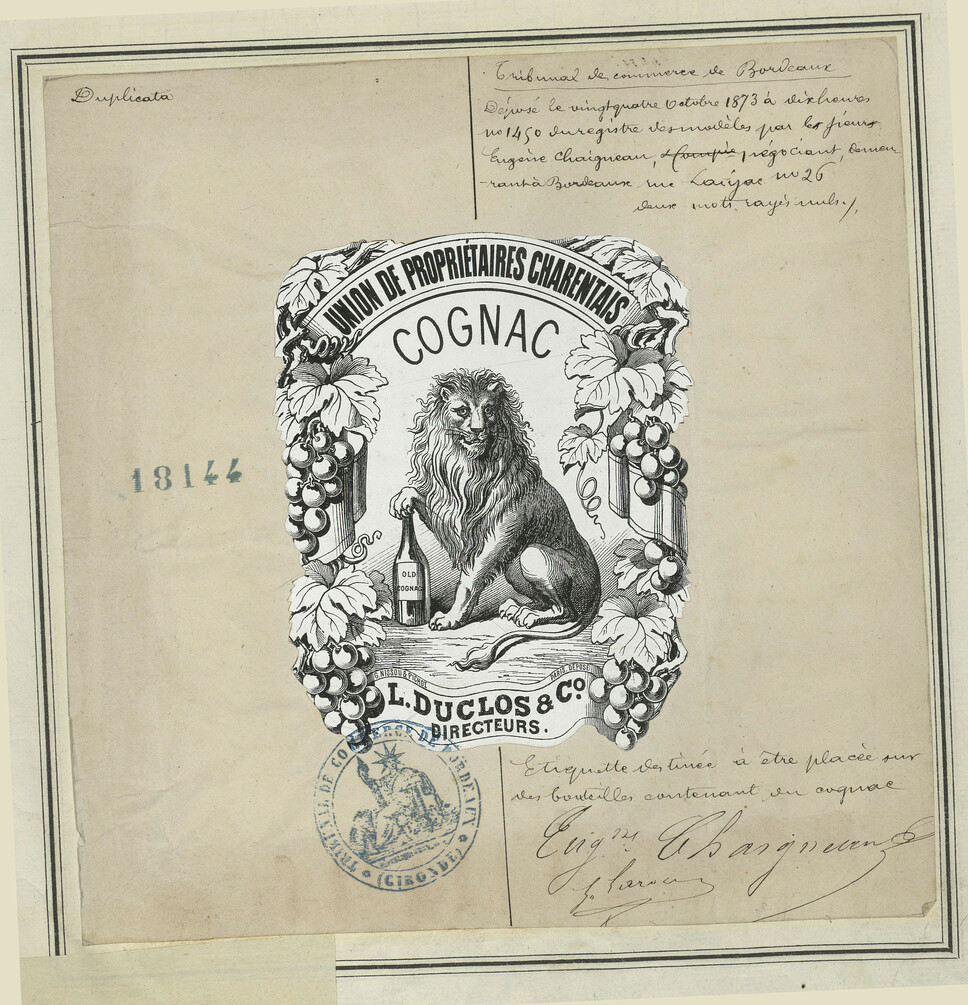 Duplicata
Tribunal de commerce de Bordeaux
Déposé le vingtquatre Octobre 1873 à dix heures
no 1450 du registre des modèles par les sieurs
Eugène Chaigneau, négociant, demeu
-rant à Bordeaux rue no 26
deux mots rayés nuls./.
UNION DE PROPRIÉTAIRES CHARENTAIS
COGNAC
18144
OLD
COGNAC
L. DUCLOS & Co
DIRECTEURS.
TRIBUNAL DE COMMERCE DE BORDEAUX
(GIRONDE)
Etiquette destinée à être placée sur
des bouteilles contenant du cognac
Eug. Chaigneau